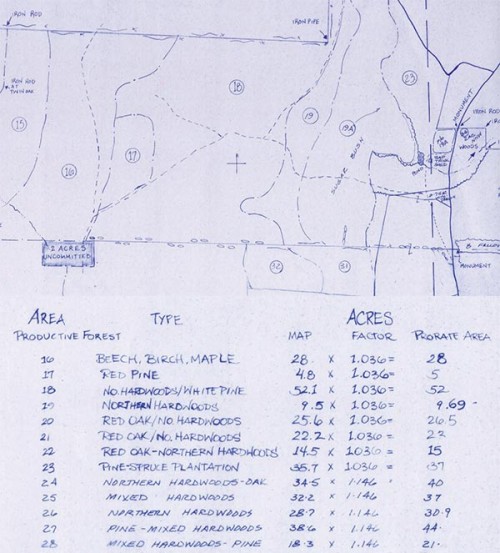 IRON ROD
IRON PIPE
IRON ROD
AT
18
23
15
19
19A
17
16
MONUMENT
IRON ROD
SUGAR BUSH
WOODS
2 ACRES
UNCOMMITTED
32
31
MONUMENT
AREA TYPE ACRES
PRODUCTIVE FOREST MAP FACTOR PRORATE AREA
16 BEECH, BIRCH, MAPLE 28. X 1.036= 28
17 RED PINE 4.8 X 1.036= 5
18 NO. HARDWOODS/WHITE PINE 52.1 X 1.036= 52
19 NORTHERN HARDWOODS 9.5 X 1.036= 9.69
20 RED OAK/NO. HARDWOODS 25.6 X 1.036= 26.5
21 RED OAK/NO. HARDWOODS 22.2 X 1.036= 23
22 RED OAK-NORTHERN HARDWOODS 14.5 X 1.036= 15
23 PINE-SPRUCE PLANTATION 35.7 X 1.036= 37
24 NORTHERN HARDWOODS-OAK 34.5 X 1.146 40
25 MIXED HARDWOODS 32.2 X 1.146 37
26 NORTHERN HARDWOOD 28.7 X 1.146 30.9
27 PINE-MIXED HARDWOODS 38.6 X 1.146 44.
28 MIXED HARDWOODS-PINE 18.3 X 1.146 21.